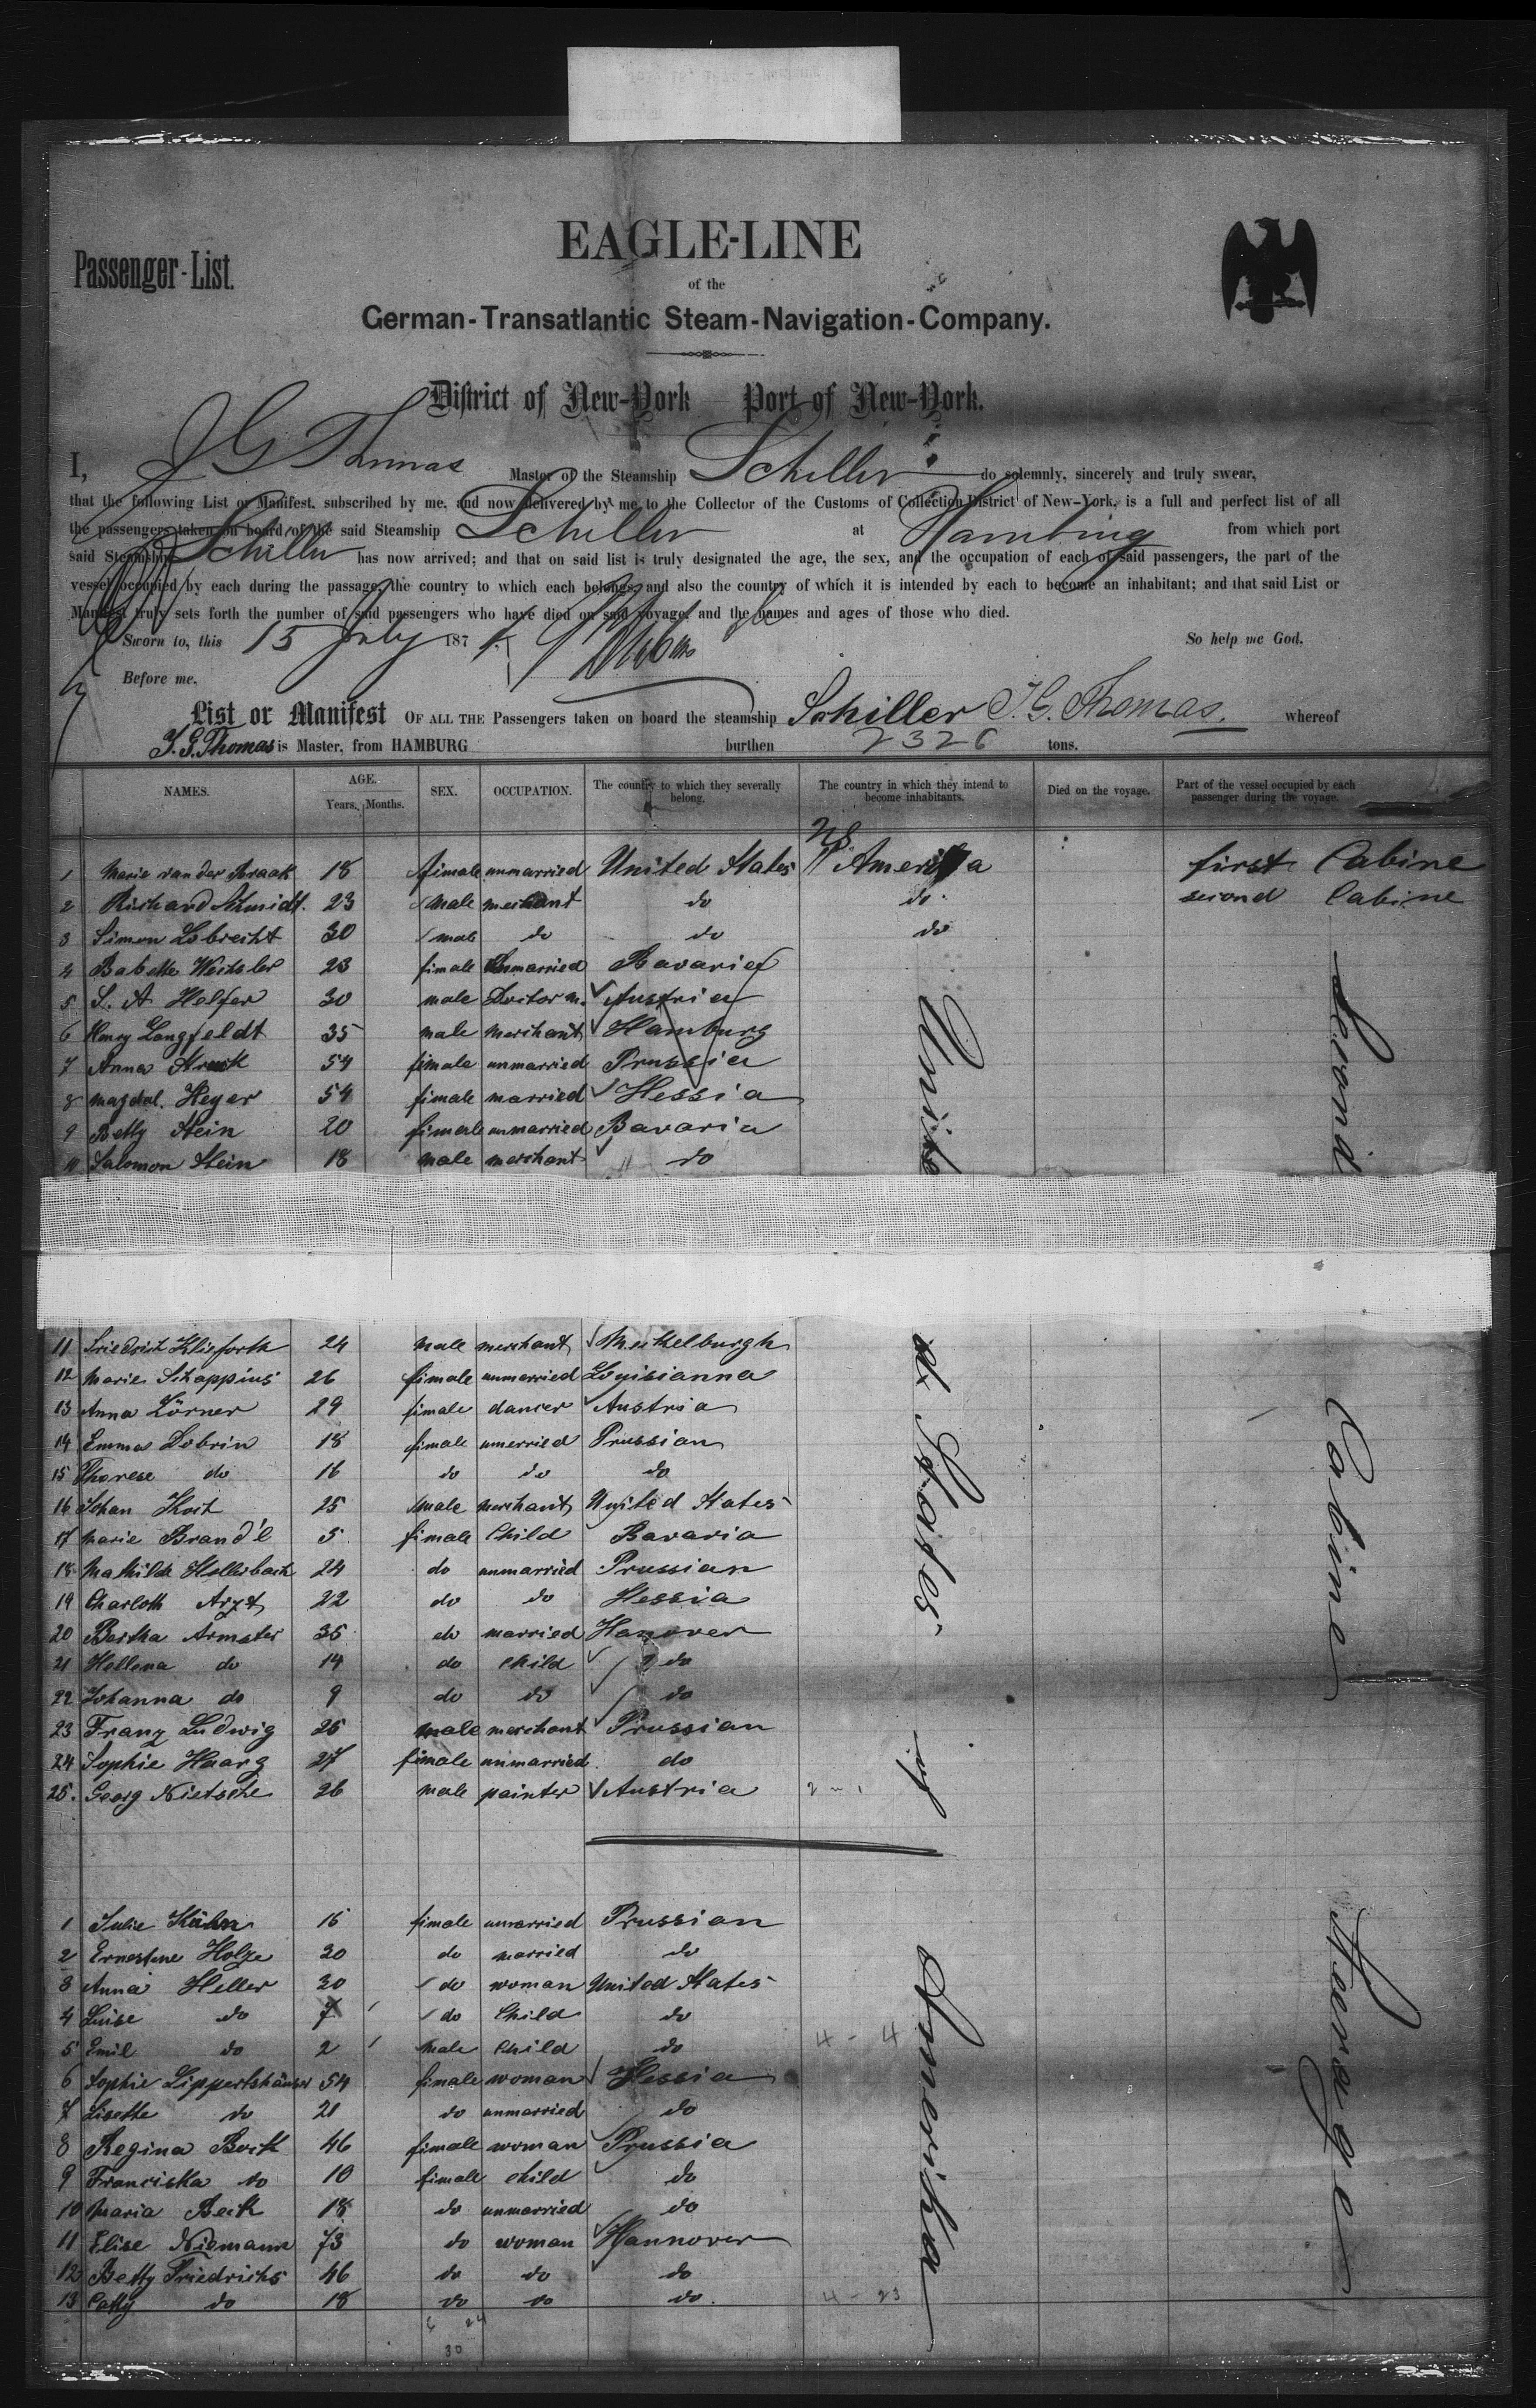 Passenger-List.
EAGLE-LINE
of the
German-Transatlantic Steam-Navigation-Company.
District of New-York Port of New-York.
I, J G Thomas Master of the Steamship Schiller do solemnly, sincerely and truly swear,
that the following List or Manifest, subscribed by me, and now delivered by me to the Collector of the Customs of Collection District of New-York, is a full and perfect list of all
the passengers taken on board of the said Steamship Schiller at Hamburg from which port
said Steamship Schiller has now arrived; and that on said list is truly designated the age, the sex, and the occupation of each of said passengers, the part of the
vessel occupied by each during the passage, the country to which each belongs, and also the country of which it is intended by each to become an inhabitant; and that said List or
Manifest truly sets forth the number of said passengers who have died on said voyage, and the names and ages of those who died.
Sworn to, this 15 July 187 So help me God.
Before me.
List or Manifest OF ALL THE Passengers taken on board the steamship Schiller J. G. Thomas. whereof
J. G. Thomas is Master, from HAMBURG burthen 2326 tons.
NAMES. AGE. Years. Months. SEX. OCCUPATION. The country to which they severally belong. The country in which they intend to become inhabitants. Died on the voyage. Part of the vessel occupied by each passenger during the voyage.
1 Marie van der Braak 18 fimale unmarried United States Amerika first Cabine
2 Richard Schmidt. 23 male merchant do do second Cabine
3 Simon Lobrecht 30 male do do do
4 Babette Wechsler 23 fimale unmarried Bavaria
5 S. A. Helfer 30 male Doctor m. Austria
6 Henry Langfeldt 35 male merchant Hamburg
7 Anna 54 fimale unmarried Prussia
8 Magdal. Heyer 54 fimale married Hessia
9 Betty Stein 20 fimale unmarried Bavaria
10 Salomon Stein 18 male merchant do
11 Friedrich Klieforth 24 male merchant Meckelburgh
12 Marie Schappius 26 fimale unmarried Loyisianna
13 Anna Lörner 29 fimale dancer Austria
14 Emma Dobrin 18 fimale unmerried Prussian
15 Therese do 16 do do do
16 Johan Koch 25 male merchant United States
17 Marie Brand'l 5 fimale Child Bavaria
18 Mathilde Hollerbach 24 do unmarried Prussian
19 Charloth Arzt 22 do do Hessia
20 Bertha Armster 35 do married Hanover
21 Hellena do 14 do child do
22 Johanna do 9 do do do
23 Franz Ludwig 25 male merchant Prussian
24 Sophie Haarg 27 fimale unmarried do
25. Georg Nietsche 26 male painter Austria
United States of Amerika
Second Cabine
1 Julie Kühn 16 fimale unmarried Prussian
2 Ernestine Holze 30 do married do
3 Anna Heller 30 do woman United States
4 Luise do 7 do Child do
5 Emil do 2 male Child do 4 - 4
6 Sophie Lippertshäuser 54 fimale woman Hessia
7 Lisette do 21 do unmarried do
8 Regina Bock 46 fimale woman Prussia
9 Franciska do 10 fimale child do
10 Maria Beck 18 do unmarried do
11 Elise Niemann 73 do woman Hannover
12 Betty Friedrichs 46 do do do
13 Catty do 18 do do do. 4 - 23
Steerage
30